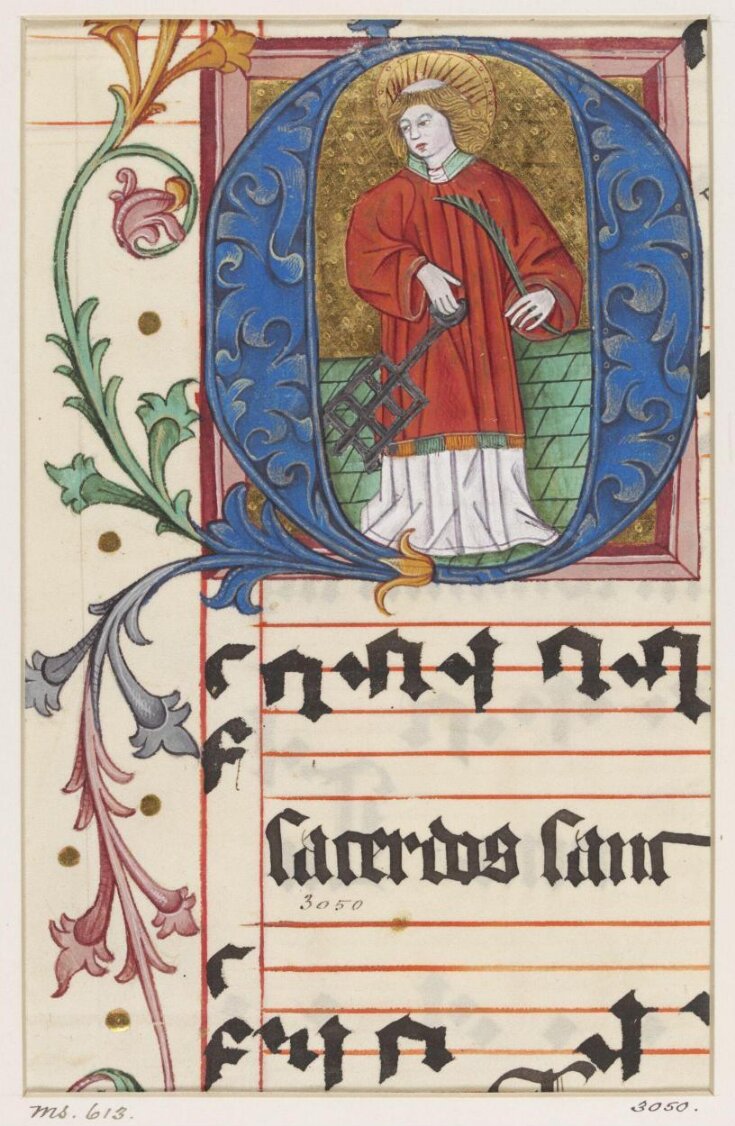 sacerdos sanc
3050
ms. 613.
3050.